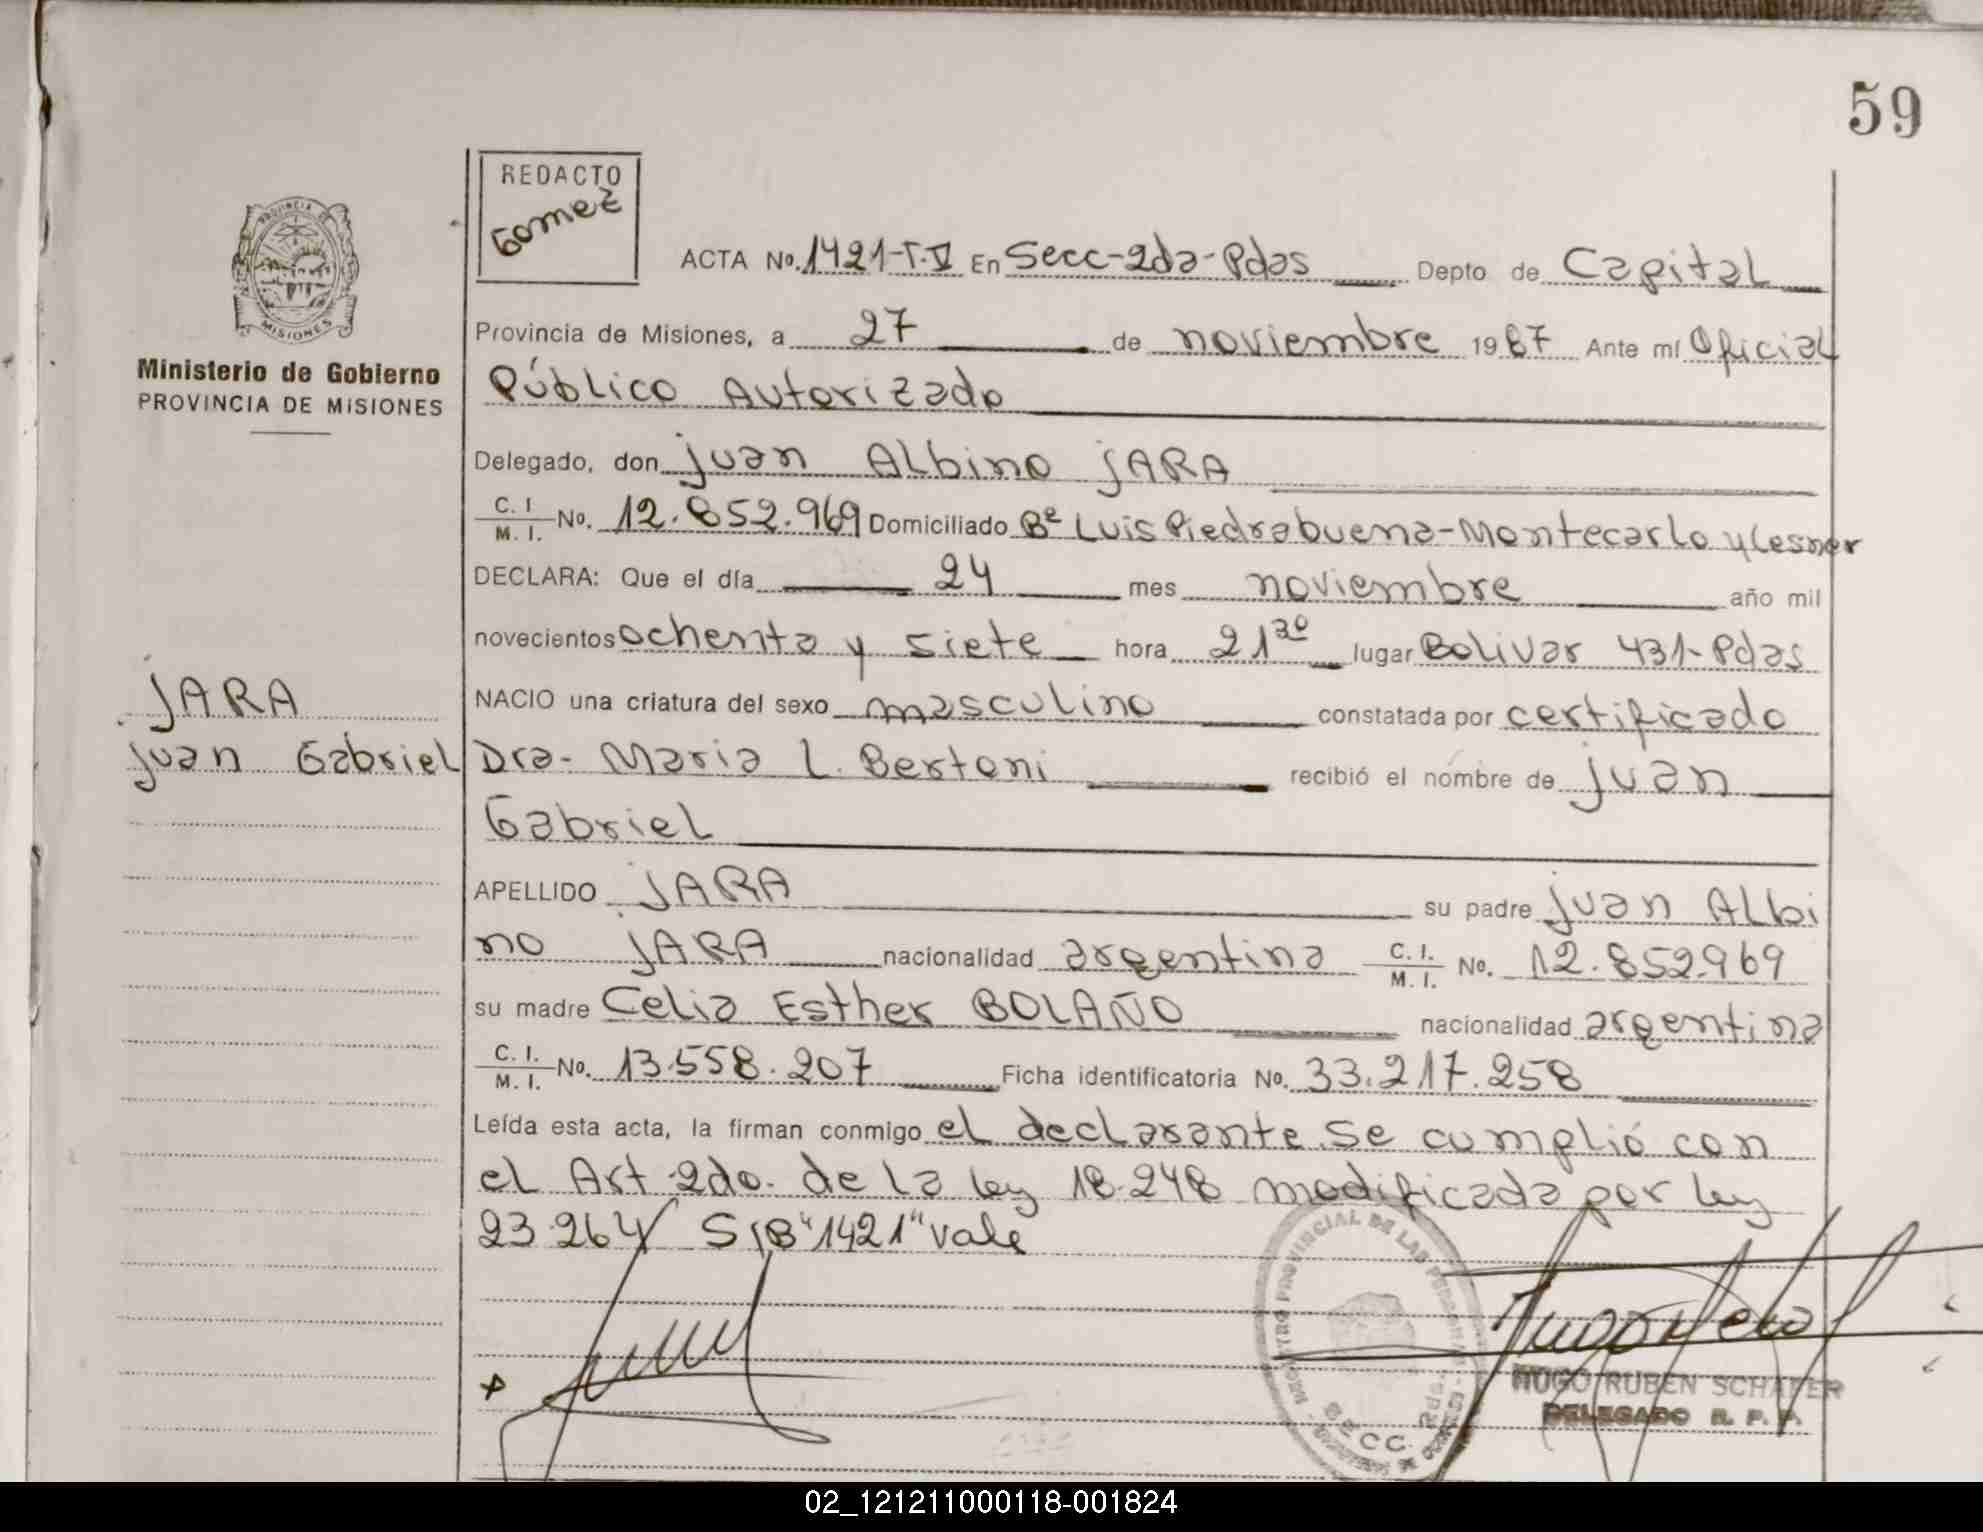 59
REDACTO
Gomez
ACTA No. 1421-T.V En Secc-2da-Pdas Depto de Capital
Provincia de Misiones, a 27 de noviembre 1987 Ante mí Oficial
Público Autorizado
Ministerio de Gobierno
PROVINCIA DE MISIONES
PROVINCIA DE
MISIONES
Delegado, don Juan Albino JARA
C. I. M. I. No. 12.852.969 Domiciliado Bº Luis Piedrabuena-Montecarlo y Lesner
DECLARA: Que el día 24 mes noviembre año mil
novecientos ochenta y siete hora 21³⁰ lugar Bolivar 431-Pdas
NACIO una criatura del sexo masculino constatada por certificado
JARA
Juan Gabriel
Dra- Maria L. Bertoni recibió el nombre de Juan
Gabriel
APELLIDO JARA su padre Juan Albi
no JARA nacionalidad argentina C. I. M. I. No. 12.852.969
su madre Celia Esther BOLAÑO nacionalidad argentina
C. I. M. I. No. 13.558.207 Ficha identificatoria No. 33.217.258
Leída esta acta, la firman conmigo el declarante. Se cumplió con
el Art. 2do. de la ley 18.248 modificada por ley
23.264/ S/B "1421" vale
REGISTRO PROVINCIAL DE LAS PERSONAS
SECC. 2da.
HUGO RUBEN SCHAFER
DELEGADO R. P. P.
02_121211000118-001824